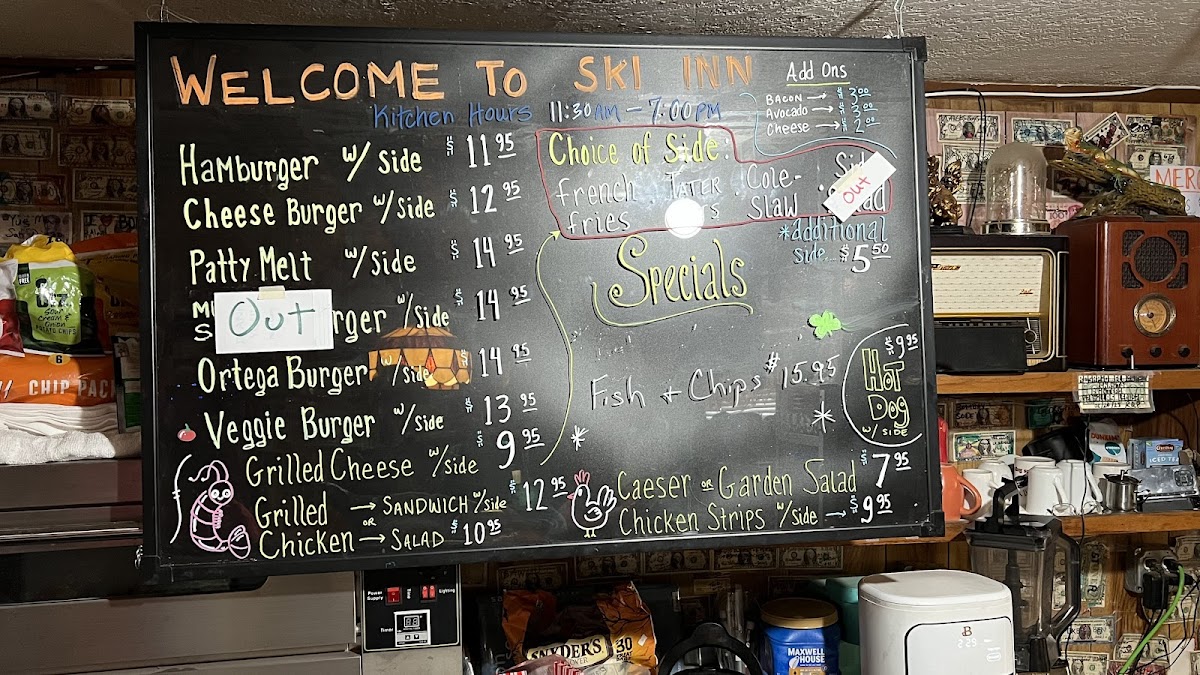 WELCOME TO SKI INN
Kitchen Hours 11:30AM - 7:00PM
Add Ons
BACON → $3.00
Avocado → $3.00
Cheese → $2.00
Hamburger w/ Side $11.95
Cheese Burger w/Side $12.95
Patty Melt w/Side $14.95
Out
rger w/Side $14.95
Ortega Burger w/Side $14.95
Veggie Burger w/Side $13.95
Grilled Cheese w/side $9.95
Grilled → SANDWICH w/side $12.95
OR
Chicken → SALAD $10.95
Choice of Side:
french TATER Cole-
fries Slaw
Out
*additional
side... $5.50
Specials
Fish + Chips $15.95
$9.95
HOT
Dog
w/ SIDE
Caeser or Garden Salad $7.95
Chicken Strips w/Side → $9.95
CHIP PAC
Sour
Cream &
Onion
POTATO CHIPS
Power
Supply
Lighting
Timer
SNYDER'S
30
MAXWELL
HOUSE
DUNKIN'
ICED TE
MERC